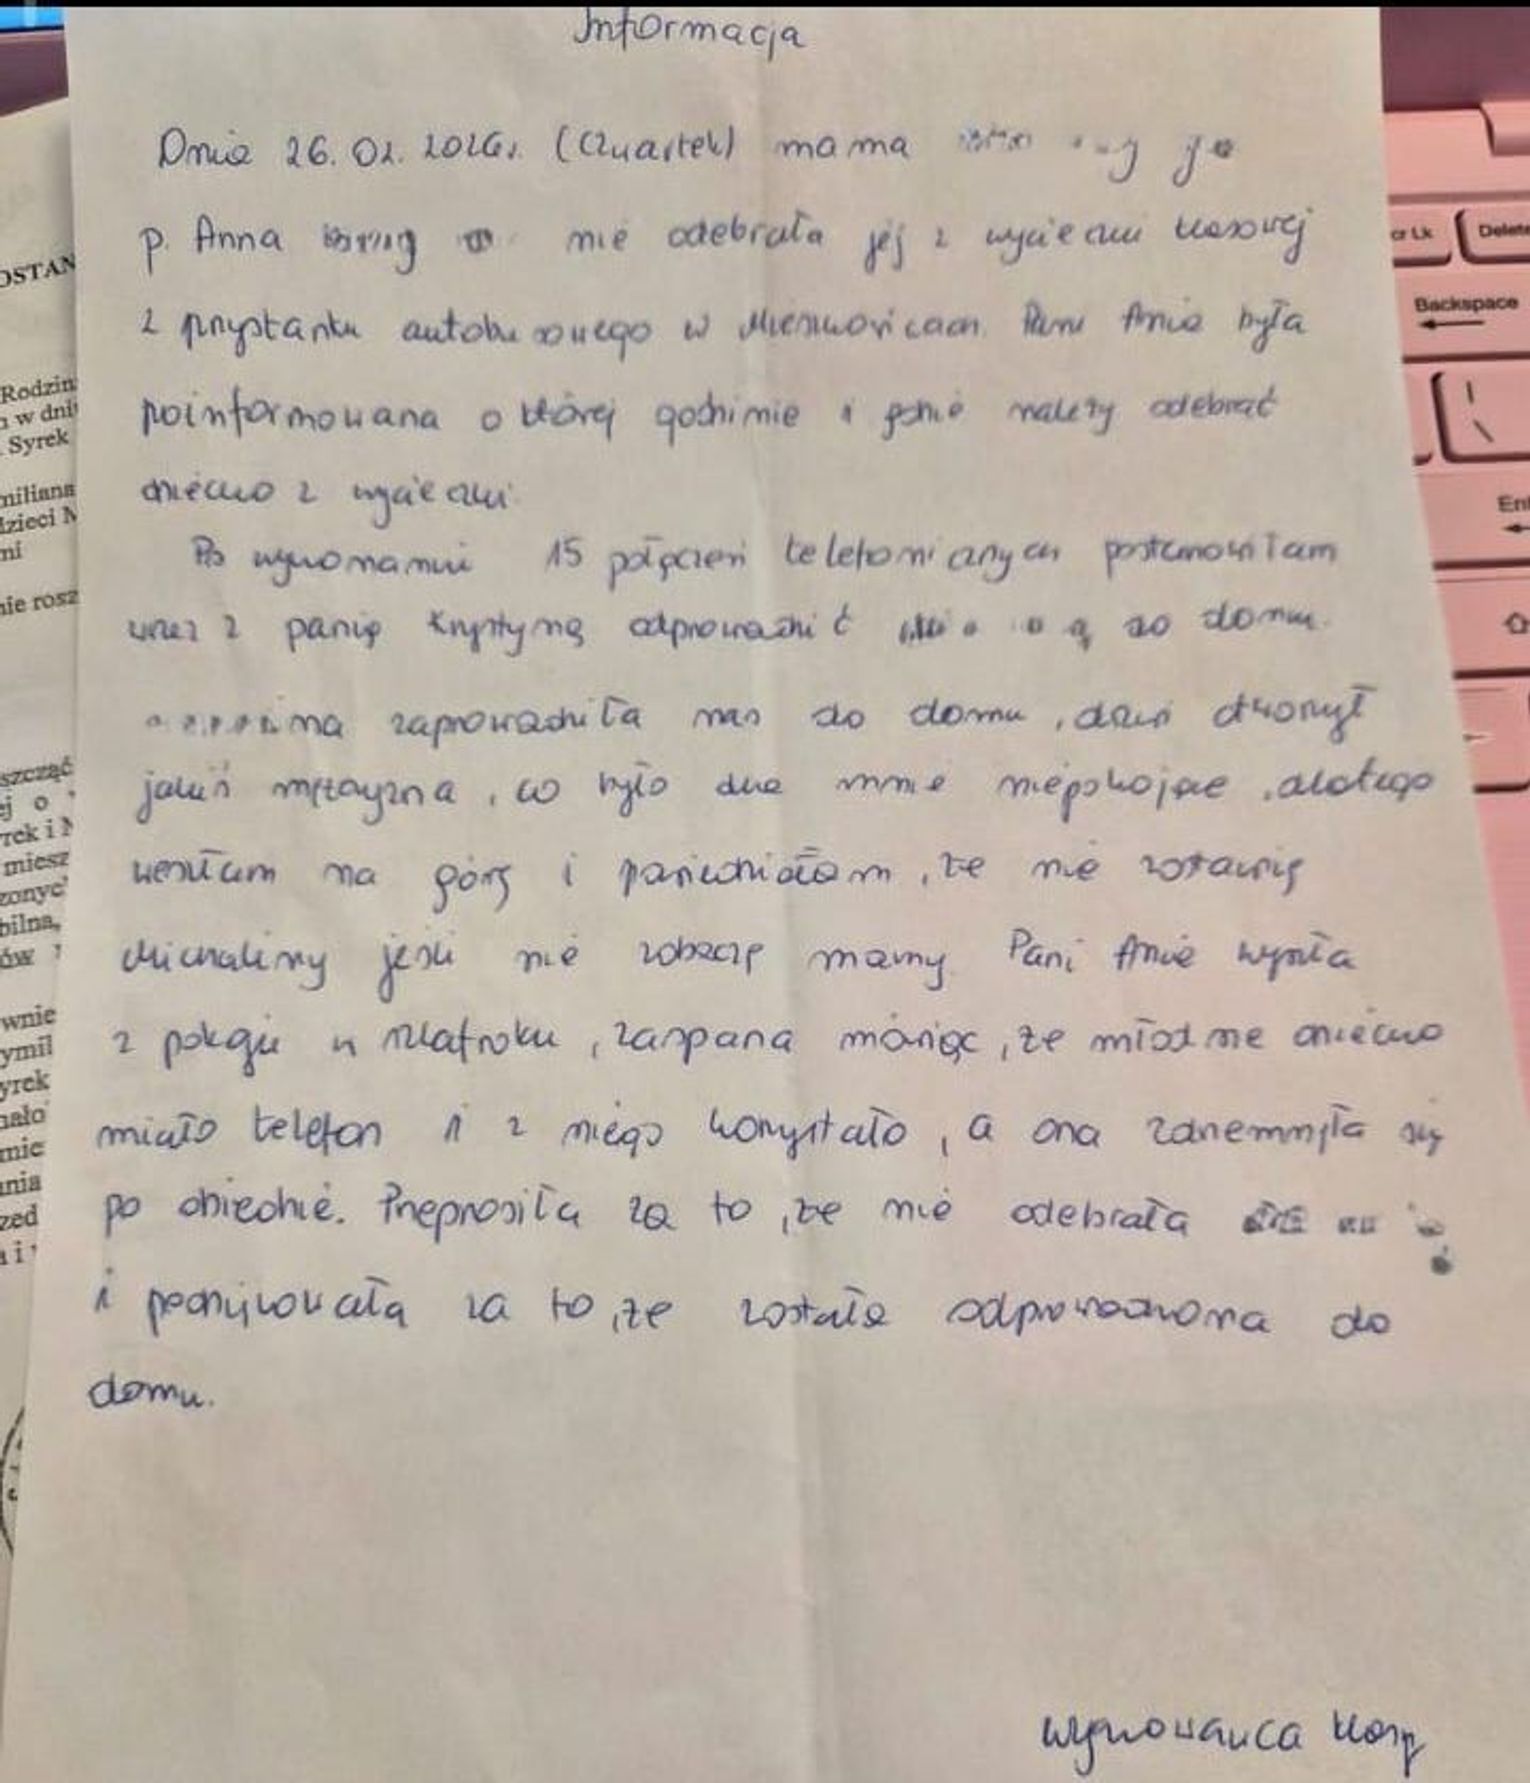 Informacja
Dnia 26.02.2026r. (czwartek) mama
p. Anna nie odebrała jej z wycieczki klasowej
z przystanku autobusowego w Mieszkowicach. Pani Ania była
poinformowana o której godzinie i gdzie należy odebrać
dziecko z wycieczki.
Po wykonaniu 15 połączeń telefonicznych postanowiłam
wraz z panią Krystyną odprowadzić do domu.
zaprowadziła nas do domu, drzwi otworzył
jakiś mężczyzna, co było dla mnie niepokojące, dlatego
weszłam na górę i powiedziałam, że nie zostawię
Michaliny jeśli nie zobaczę mamy. Pani Ania wyszła
z pokoju w szlafroku, zaspana mówiąc, że młodsze dziecko
miało telefon i z niego korzystało, a ona zdrzemnęła się
po obiedzie. Przeprosiła za to, że nie odebrała
i podziękowała za to, że została odprowadzona do
domu.
wychowawca klasy
OSTAN
Rodzin
w dni
Syrek
miliana
dzieci
nie rosz
szcząć
ej o
rek i
miesz
zonyc
bilna,
ów
wnie
ymil
yrek
mie
ania
zed
Delete
Backspace